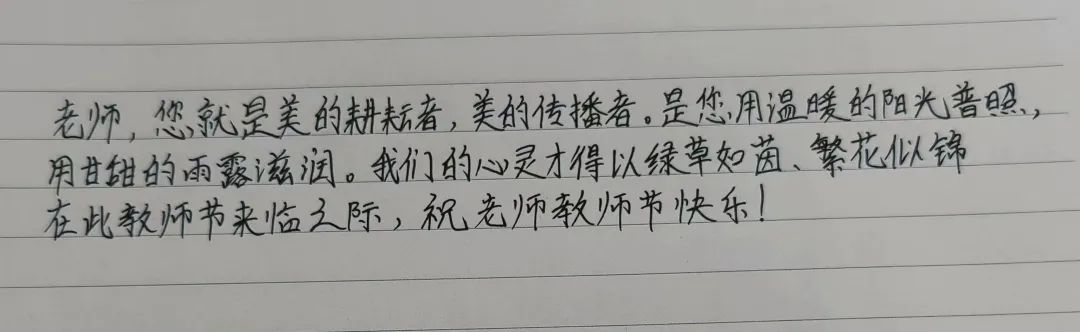 老师，您就是美的耕耘者，美的传播者。是您用温暖的阳光普照，
用甘甜的雨露滋润。我们的心灵才得以绿草如茵、繁花似锦
在此教师节来临之际，祝老师教师节快乐！